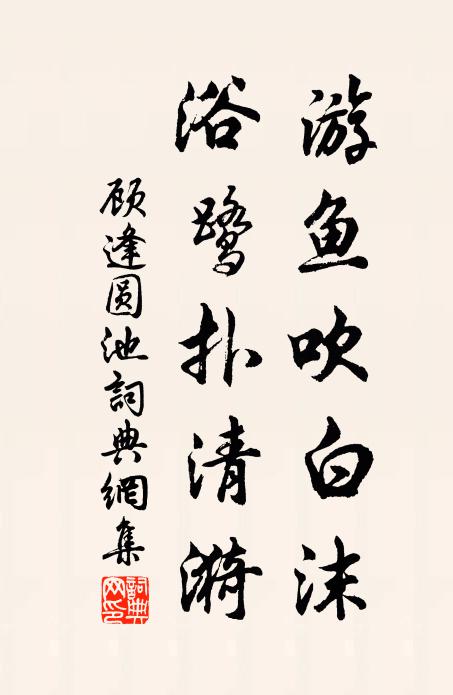 游鱼吹白沫
浴鹭扑清漪
顾逢圆池詞典網集
詞典网印